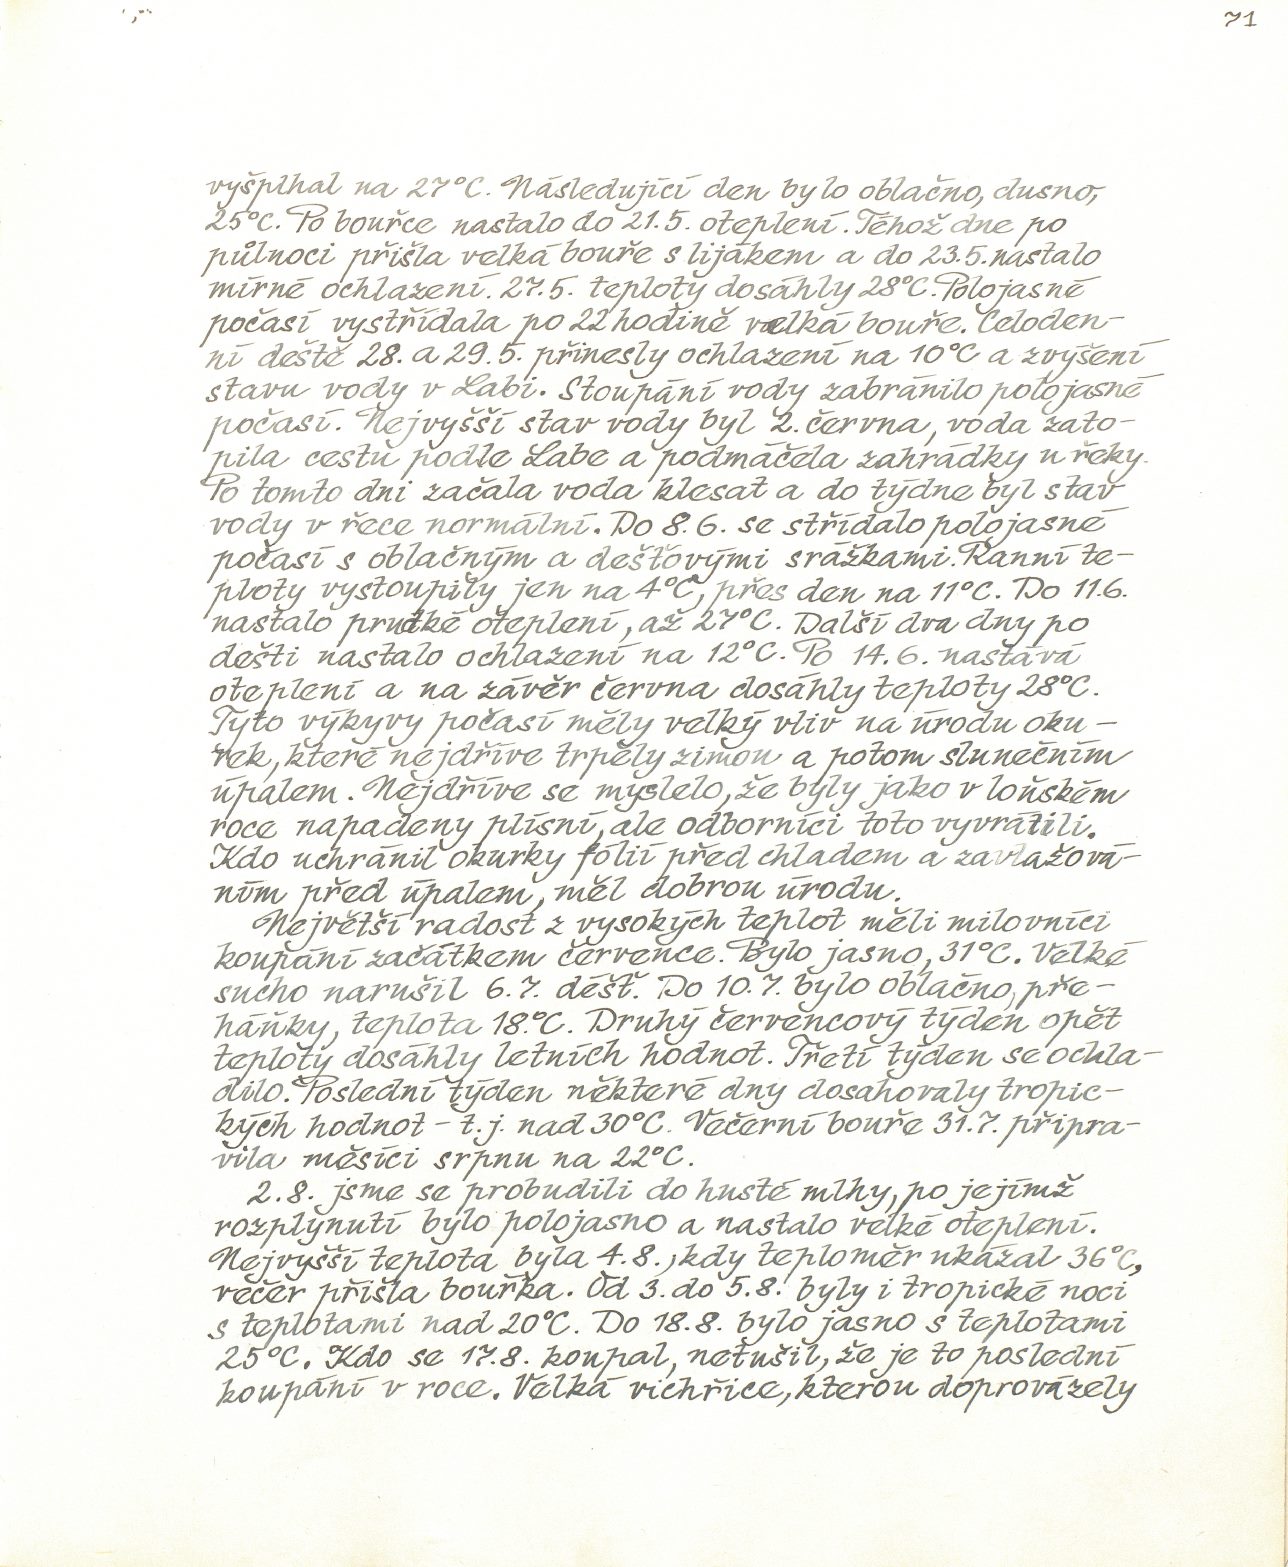 71
vyšplhal na 27°C. Následující den bylo oblačno, dusno,
25°C. Po bouřce nastalo do 21.5. oteplení. Téhož dne po
půlnoci přišla velká bouře s lijákem a do 23.5. nastalo
mírné ochlazení. 27.5. teploty dosáhly 28°C. Polojasné
počasí vystřídala po 22 hodině velká bouře. Celoden-
ní deště 28. a 29.5. přinesly ochlazení na 10°C a zvýšení
stavu vody v Labi. Stoupání vody zabránilo polojasné
počasí. Nejvyšší stav vody byl 2. června, voda zato-
pila cestu podle Labe a podmáčela zahrádky u řeky.
Po tomto dni začala voda klesat a do týdne byl stav
vody v řece normální. Do 8.6. se střídalo polojasné
počasí s oblačným a dešťovými srážkami. Ranní te-
ploty vystoupily jen na 4°C, přes den na 11°C. Do 11.6.
nastalo prudké oteplení, až 27°C. Další dva dny po
dešti nastalo ochlazení na 12°C. Po 14.6. nastává
oteplení a na závěr června dosáhly teploty 28°C.
Tyto výkyvy počasí měly velký vliv na úrodu oku-
rek, které nejdříve trpěly zimou a potom slunečním
úpalem. Nejdříve se myslelo, že byly jako v loňském
roce napadeny plísní, ale odborníci toto vyvrátili.
Kdo uchránil okurky fólií před chladem a zavlažová-
ním před úpalem, měl dobrou úrodu.
Největší radost z vysokých teplot měli milovníci
koupání začátkem července. Bylo jasno, 31°C. Velké
sucho narušil 6.7. déšť. Do 10.7. bylo oblačno, pře-
háňky, teplota 18°C. Druhý červencový týden opět
teploty dosáhly letních hodnot. Třetí týden se ochla-
dilo. Poslední týden některé dny dosahovaly tropic-
kých hodnot - t.j. nad 30°C. Večerní bouře 31.7. připra-
vila měsíci srpnu na 22°C.
2.8. jsme se probudili do husté mlhy, po jejímž
rozplynutí bylo polojasno a nastalo velké oteplení.
Nejvyšší teplota byla 4.8., kdy teploměr ukázal 36°C,
večer přišla bouřka. Od 3. do 5.8. byly i tropické noci
s teplotami nad 20°C. Do 18.8. bylo jasno s teplotami
25°C. Kdo se 17.8. koupal, netušil, že je to poslední
koupání v roce. Velká vichřice, kterou doprovázely